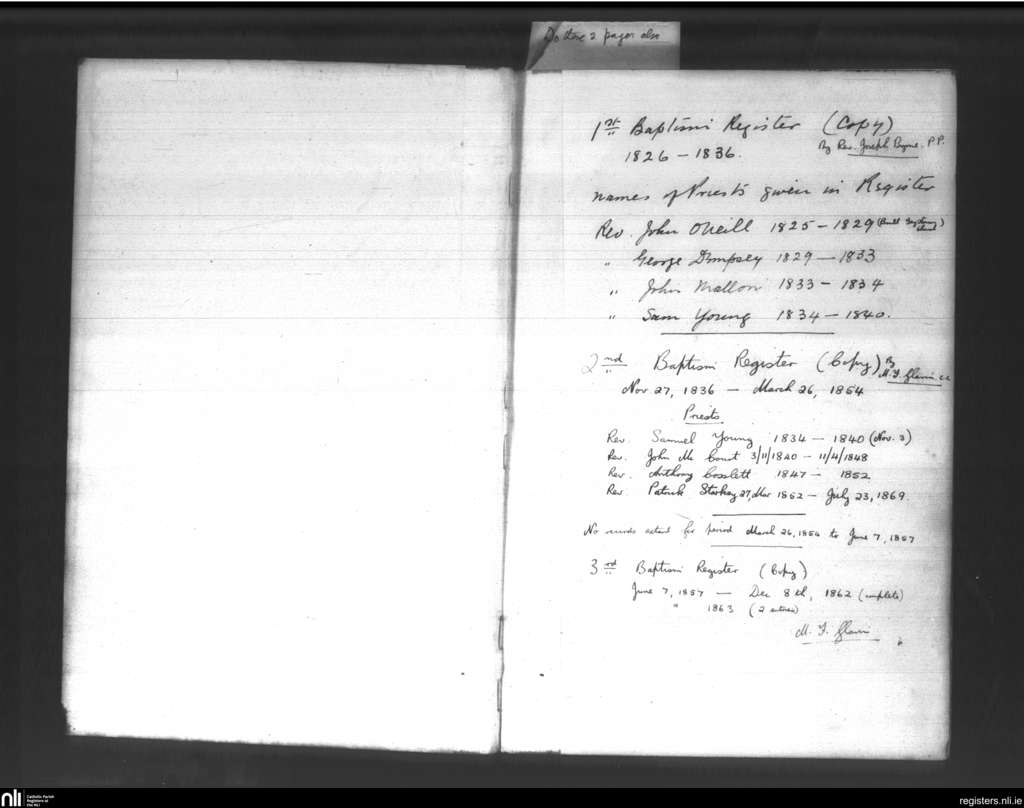 Do these 2 pages also
1st Baptism Register (Copy)
By Rev. Joseph Byrne. P.P.
1826 – 1836.
Names of Priests given in Register
Rev. John O'Neill 1825 – 1829 (Built
" George Dempsey 1829 – 1833
" John Mallon 1833 – 1834
" Sam Young 1834 – 1840.
2nd Baptism Register (Copy) By
M. F. Glavin c.c.
Nov 27, 1836 – March 26, 1854
Priests
Rev. Samuel Young 1834 – 1840 (Nov. 3)
Rev. John Mc Court 3/11/1840 – 11/4/1848
Rev. Anthony Cosslett 1847 – 1852
Rev. Patrick Starkey 27, Mar 1852 – July 23, 1869.
No records extant for period March 26, 1854 to June 7, 1857
3rd Baptism Register (Copy)
June 7, 1857 – Dec 8th, 1862 (complete)
" 1863 (2 entries)
M. F. Glavin
nli Catholic Parish
Registers at
the NLI
registers.nli.ie